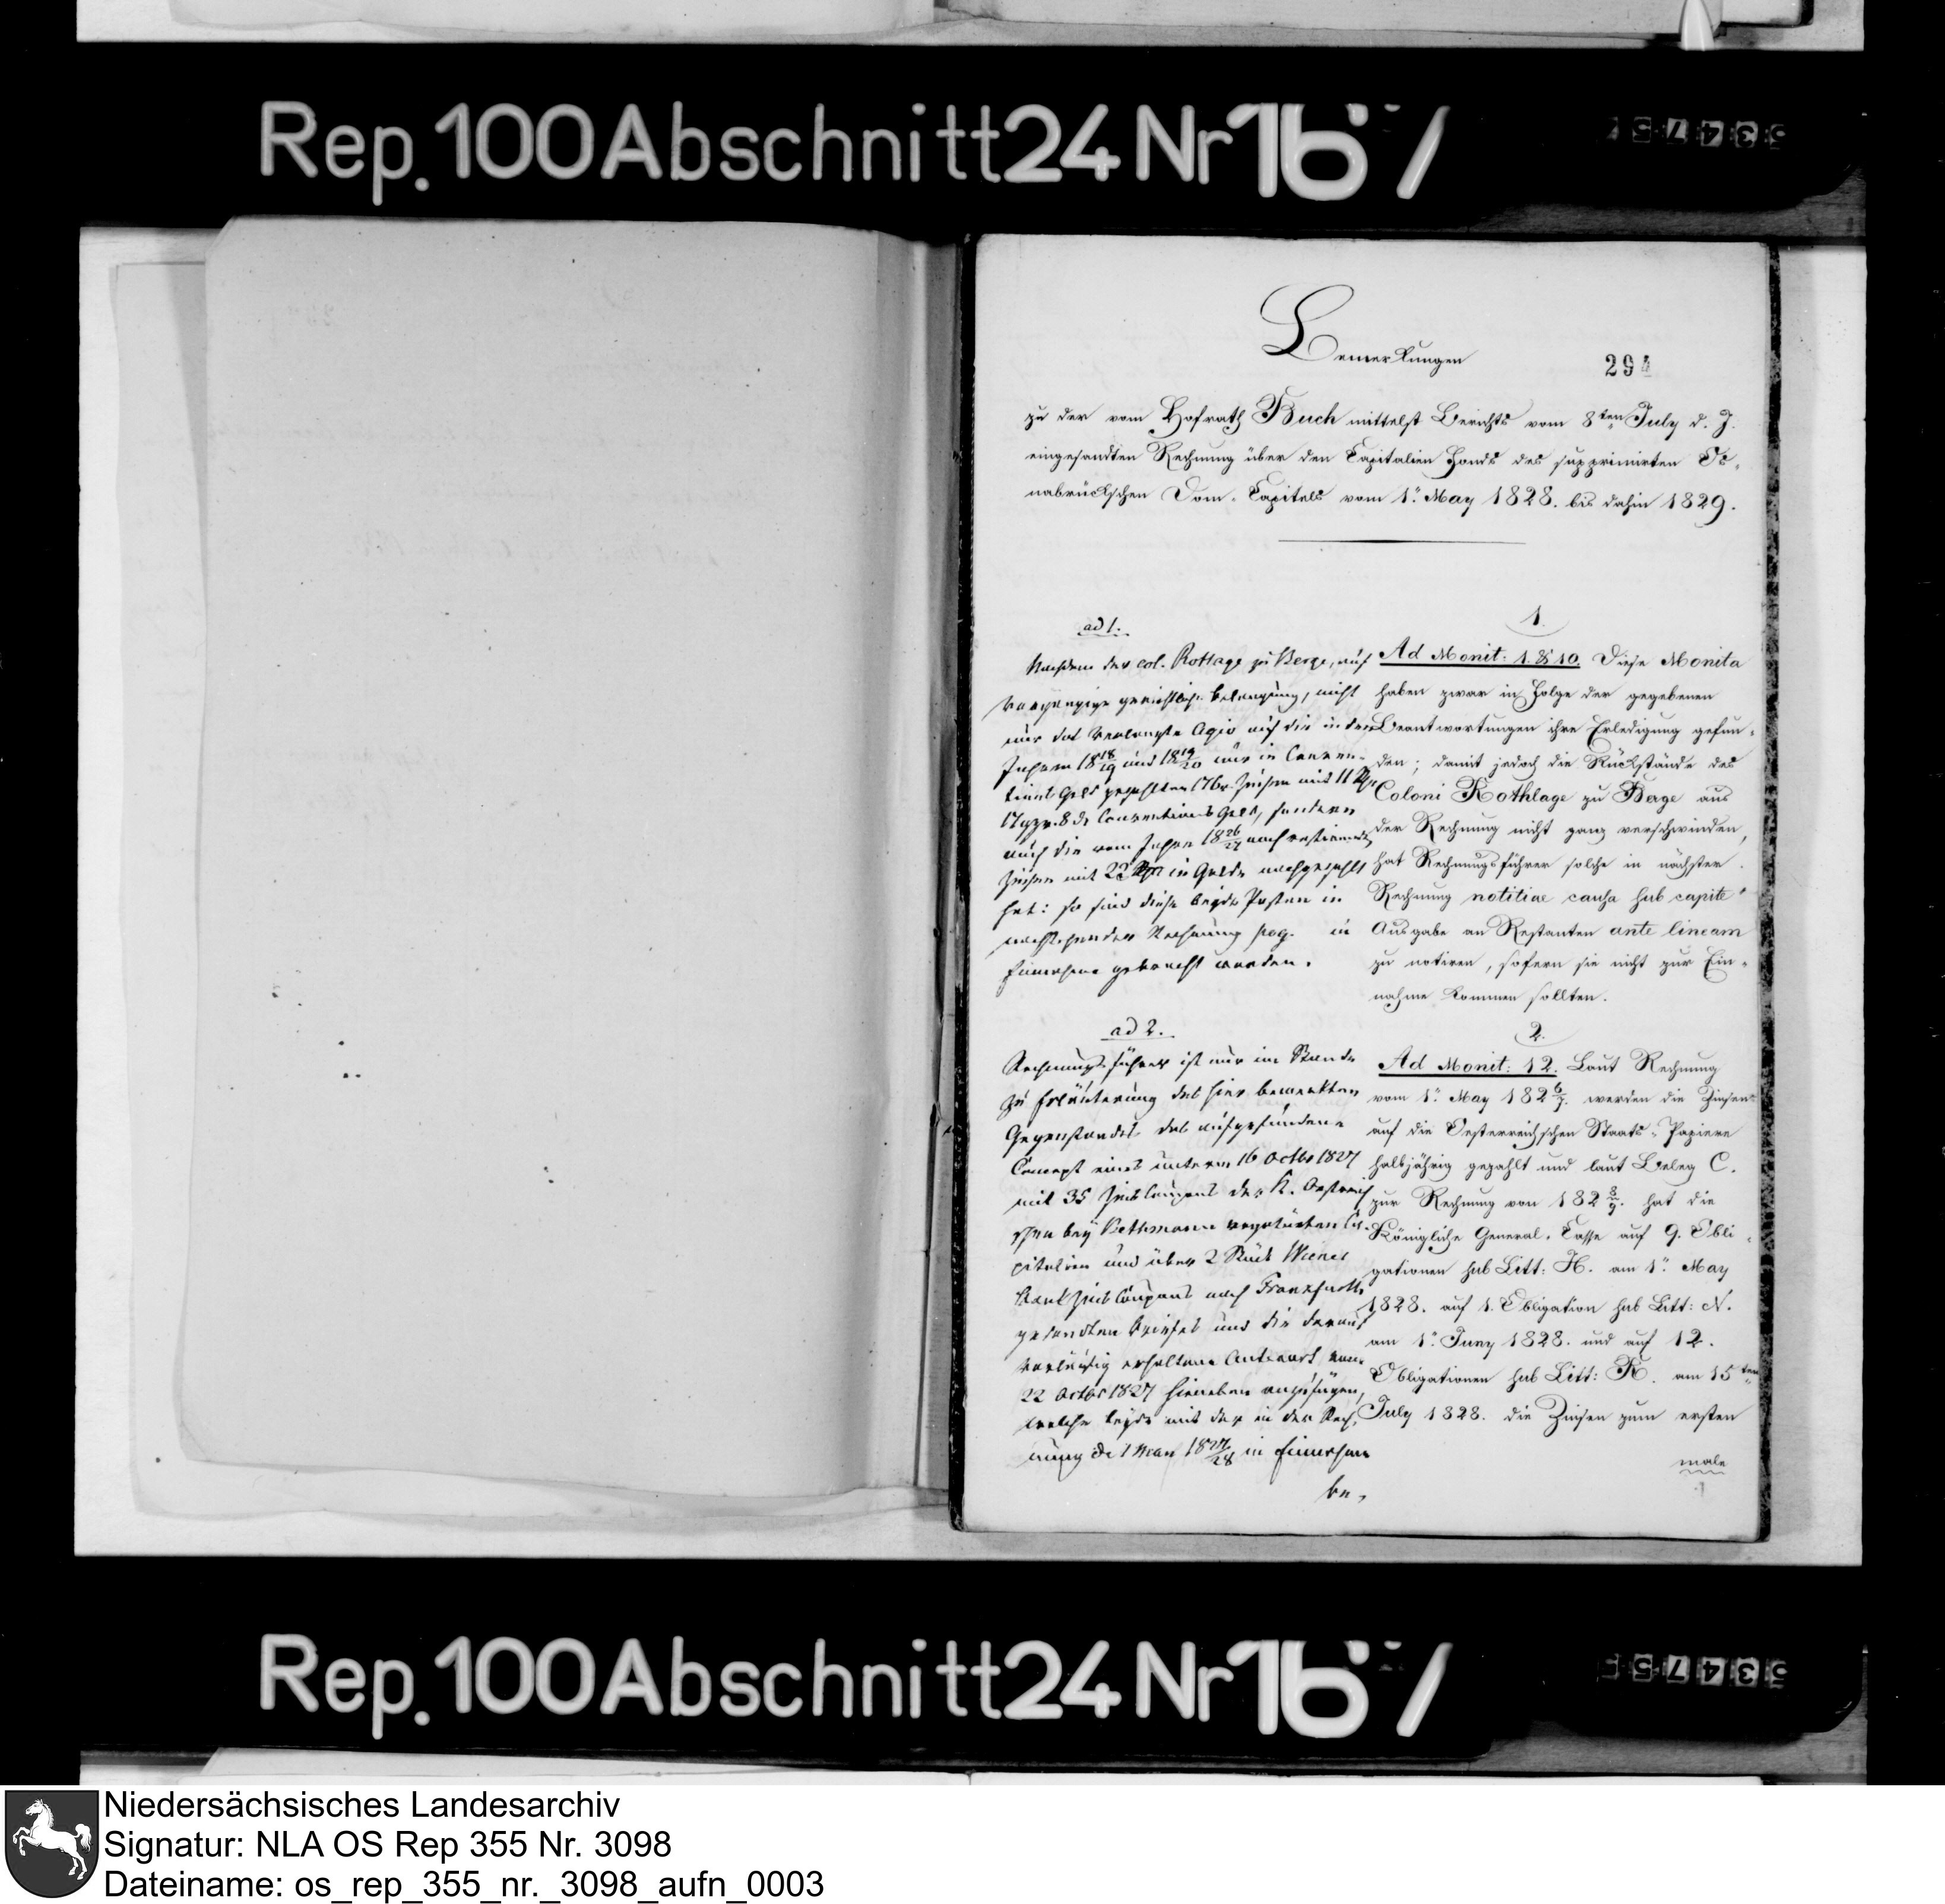 Rep.100Abschnitt24Nr167
Bemerkungen
294
zu der vom Hofrath Buch mittelst Berichts vom 8ten July d. J.
eingesandten Rechnung über den Capitalien Fonds des supprimirten Os-
nabrückschen Dom-Capitels vom 1n May 1828. bis dahin 1829.
ad 1.
Nachdem der col. Rottage zu Berge, auf
vorgängige gerichtliche Belangung, nicht
nur das verlangte Agio auf die in den
Jahren 18 18/19 und 18 19/20 nur in Conven-
tions Geld gezahlten Zinsen mit 11
17 ggr. 8 d Conventions Geld, sondern
auch die vom Jahre 18 26/27 noch restirende
Zinsen mit 22 in Golde nachgezahlt
hat: so sind diese beyde Posten in
nachstehender Rechnung pag. in
Einnahme gebracht worden.
ad 2.
Rechnungsführer ist nur im Stande
zu Erläuterung des hier bemerkten
Gegenstandes das aufgefundene
Concept eines unterm 16 Octbr 1827
mit 35 Zins Coupons der K. Oestreich
schen bey Bethmann negotiirten Ca-
pitalien und über 2 Stück Wiener
Bank Zins Coupons nach Frankfurth
gesandten Briefes und die darauf
vorläufig erhaltene Antwort vom
22 Octbr 1827 hieneben anzufügen,
welche beyde mit der in der Rech-
nung de 1 May 18 27/28 in Einnahme
be-
1.
Ad Monit: 1. & 10. Diese Monita
haben zwar in Folge der gegebenen
Beantwortungen ihre Erledigung gefun-
den; damit jedoch die Rückstände des
Coloni Rothlage zu Berge aus
der Rechnung nicht ganz verschwinden,
hat Rechnungsführer solche in nächster
Rechnung notitiae causa sub capite
Ausgabe an Restanten ante lineam
zu notiren, sofern sie nicht zur Ein-
nahme kommen sollten.
2.
Ad Monit: 12. Laut Rechnung
vom 1n May 182 6/7. werden die Zinsen
auf die Oesterreichschen Staats-Papiere
halbjährig gezahlt und laut Beleg C.
zur Rechnung von 182 8/9. hat die
Königliche General-Casse auf 9. Obli-
gationen sub Litt: H. am 1n May
1828. auf 1. Obligation sub Litt: N.
am 1n Juny 1828. und auf 12.
Obligationen sub Litt: K. am 15ten
July 1828. die Zinsen zum ersten
male
Rep.100Abschnitt24Nr167
Niedersächsisches Landesarchiv
Signatur: NLA OS Rep 355 Nr. 3098
Dateiname: os_rep_355_nr._3098_aufn_0003